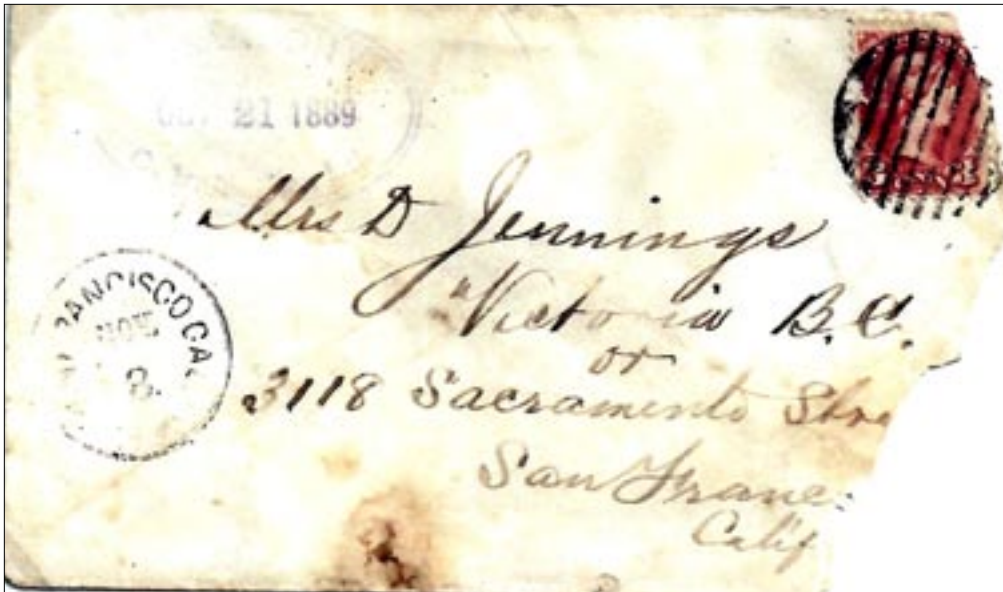 21 1889
Mrs D Jennings
Victoria B.C.
or
3118 Sacramento Stre
San Franc
Calif
RANCISCO CAL
NOV
3